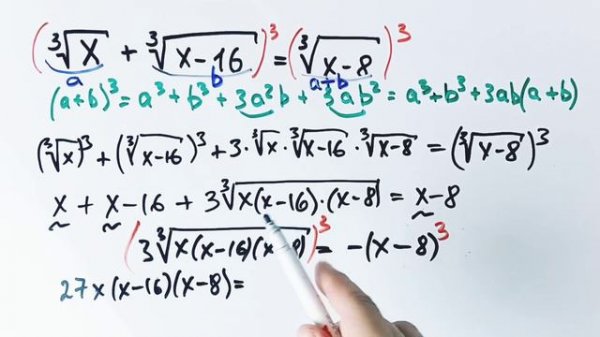 (∛x + ∛(x-16))³ = (∛(x-8))³
a b a+b
(a+b)³ = a³+b³+3a²b+3ab² = a³+b³+3ab(a+b)
(∛x)³ + (∛(x-16))³ + 3·∛x·∛(x-16)·∛(x-8) = (∛(x-8))³
x + x-16 + 3∛(x(x-16)·(x-8)) = x-8
(3∛(x(x-16)(x-8)))³ = -(x-8)³
27x(x-16)(x-8)=